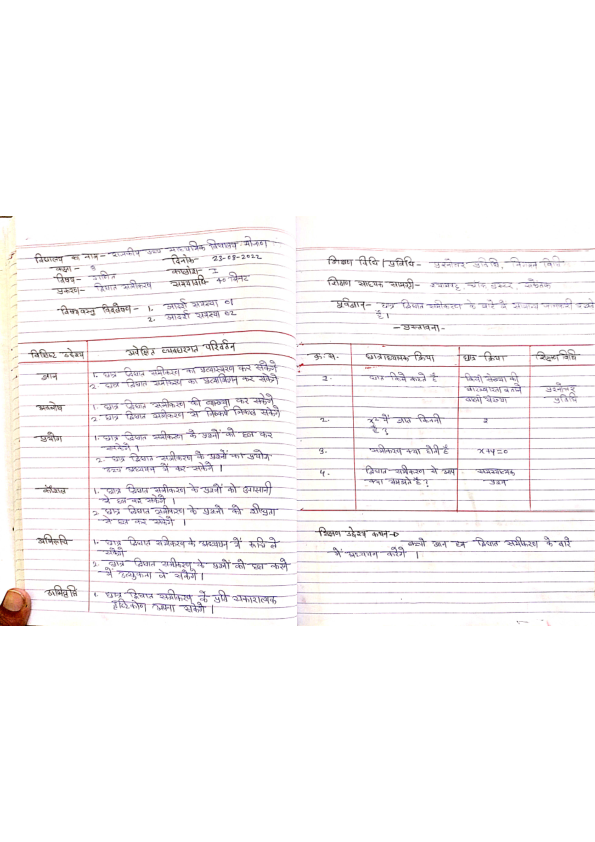 विद्यालय का नाम - राजकीय उच्च माध्यमिक विद्यालय
कक्षा - 9 दिनांक - 23-09-2022
विषय - गणित कालांश - 2
प्रकरण - द्विघात समीकरण समयावधि - 40 मिनट
विषयवस्तु विश्लेषण - 1. आदर्श समस्या 01
2. आदर्श समस्या 02
विशिष्ट उद्देश्य अपेक्षित व्यवहारगत परिवर्तन
ज्ञान 1. छात्र द्विघात समीकरण का प्रत्यास्मरण कर सकेंगे
2 छात्र द्विघात समीकरण का प्रत्यभिज्ञान कर सकेंगे
अवबोध 1. छात्र द्विघात समीकरण की व्याख्या कर सकेंगे
2 छात्र द्विघात समीकरण से निष्कर्ष निकाल सकेंगे
प्रयोग 1. छात्र द्विघात समीकरण के प्रश्नों को हल कर
सकेंगे ।
2. छात्र द्विघात समीकरण के प्रश्नों का प्रयोग
अध्यापन में कर सकेंगे ।
कौशल 1. छात्र द्विघात समीकरण के प्रश्नों को आसानी
से हल कर सकेंगे ।
2 छात्र द्विघात समीकरण के प्रश्नों को शीघ्रता
से हल कर सकेंगे ।
अभिरूचि 1. छात्र द्विघात समीकरण के अध्ययन में रूचि ले
सकेंगे
2 छात्र द्विघात समीकरण के प्रश्नों को हल करने
में उत्सुकता ले सकेंगे ।
अभिवृत्ति 1. छात्र द्विघात समीकरण के प्रति सकारात्मक
दृष्टिकोण अपना सकेंगे ।
शिक्षण विधि / प्रविधि - प्रश्नोत्तर प्रविधि, विधि
शिक्षण सहायक सामग्री - श्यामपट्ट चॉक डस्टर संकेतक
पूर्वज्ञान - छात्र द्विघात समीकरण के बारे में सामान्य जानकारी रखते
है ।
- प्रस्तावना -
क्र. स. छात्राध्यापक क्रिया छात्र क्रिया शिक्षण विधि
1. घात किसे कहते है किसी संख्या की
वाली संख्या प्रश्नोत्तर
प्रविधि
2. x² में घात कितनी
है ? 2
3. समीकरण क्या होती है x+y=0
4. द्विघात समीकरण से आप
क्या समझते है ? समस्यात्मक
प्रश्न
शिक्षण उद्देश्य कथन →
बच्चों आज हम द्विघात समीकरण के बारे
में अध्ययन करेंगे ।